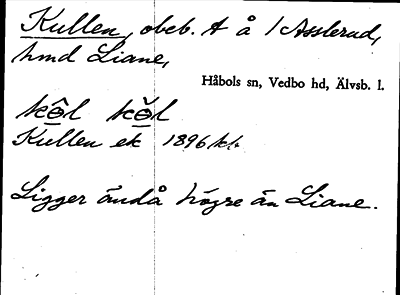 Kullen, obeb. A å 1 Asslerud,
hmd Liane,
Håbols sn, Vedbo hd, Älvsb. l.
Kullen ek 1896 kt.
Ligger ändå högre än Liane.